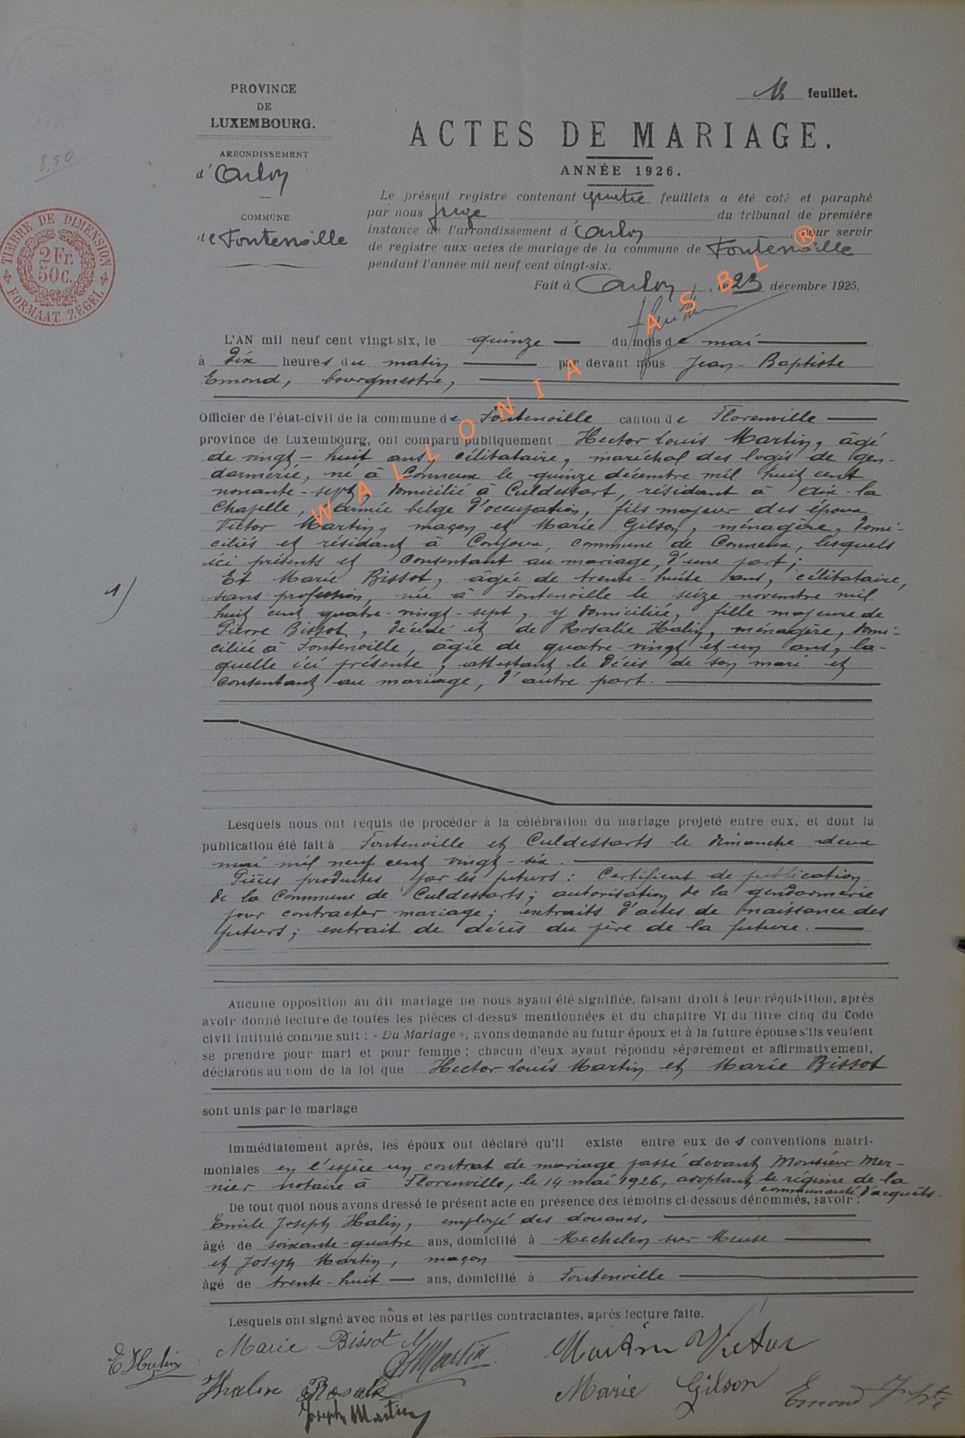 8,50
PROVINCE
DE
LUXEMBOURG.
ARRONDISSEMENT
d'Arlon
COMMUNE
de Fontenoille
TIMBRE DE DIMENSION
2 Fr.
50c.
FORMAAT ZEGEL
feuillet.
ACTES DE MARIAGE.
ANNÉE 1926.
Le présent registre contenant quatre feuillets a été coté et paraphé
par nous Juge du tribunal de première
instance de l'arrondissement d'Arlon pour servir
de registre aux actes de mariage de la commune de Fontenoille
pendant l'année mil neuf cent vingt-six.
Fait à Arlon, 23 décembre 1925.
WALLONIA ASBL ®
L'AN mil neuf cent vingt-six, le quinze du mois de mai
à dix heures du matin par devant nous Jean-Baptiste
Emond, bourgmestre,
Officier de l'état-civil de la commune de Fontenoille canton de Florenville
province de Luxembourg, ont comparu publiquement Hector Louis Martin, âgé
de vingt-huit ans, célibataire, maréchal des logis de gen-
darmerie, né à Conneux le quinze décembre mil huit cent
nonante-sept, domicilié à Culdessart, résidant à Aix-la
Chapelle, armée belge d'occupation, fils majeur des époux
Victor Martin, maçon et Marie Gilson, ménagère, domi-
ciliés et résidant à Conjoux, commune de Conneux, lesquels
ici présents et consentant au mariage, d'une part;
Et Marie Bissot, âgée de trente-huit ans, célibataire,
sans profession, née à Fontenoille le seize novembre mil
huit cent quatre-vingt-sept, y domiciliée, fille majeure de
Pierre Bissot, décédé et de Rosalie Halin, ménagère, domi-
ciliée à Fontenoille, âgée de quatre-vingt et un ans, la-
quelle ici présente, attestant le décès de son mari et
consentant au mariage, d'autre part.
1)
Lesquels nous ont requis de procéder à la célébration du mariage projeté entre eux, et dont la
publication été fait à Fontenoille et Culdessarts le dimanche deux
mai mil neuf cent vingt-six.
Pièces produites par les futurs: Certificat de publication
de la Commune de Culdessarts; autorisation de la gendarmerie
pour contracter mariage; extraits d'actes de naissance des
futurs; extrait de décès du père de la future.
Aucune opposition au dit mariage ne nous ayant été signifiée, faisant droit à leur réquisition, après
avoir donné lecture de toutes les pièces ci-dessus mentionnées et du chapitre VI du titre cinq du Code
civil intitulé comme suit : « Du Mariage », avons demandé au futur époux et à la future épouse s'ils veulent
se prendre pour mari et pour femme ; chacun d'eux ayant répondu séparément et affirmativement,
déclarons au nom de la loi que Hector Louis Martin et Marie Bissot
sont unis par le mariage
Immédiatement après, les époux ont déclaré qu'il existe entre eux des conventions matri-
moniales en l'espèce un contrat de mariage passé devant Monsieur Mer-
nier notaire à Florenville, le 14 mai 1926, adoptant le régime de la
communauté d'acquêts.
De tout quoi nous avons dressé le présent acte en présence des témoins ci-dessous dénommés, savoir :
Emile Joseph Halin, employé des douanes,
âgé de soixante-quatre ans, domicilié à Mechelen sur Meuse
et Joseph Martin, maçon
âgé de trente-huit ans, domicilié à Fontenoille
Lesquels ont signé avec nous et les parties contractantes, après lecture faite.
Marie Bissot
Martin Victor
E Halin
HMartin
Halin Rosalie
Marie Gilson
Joseph Martin
Emond